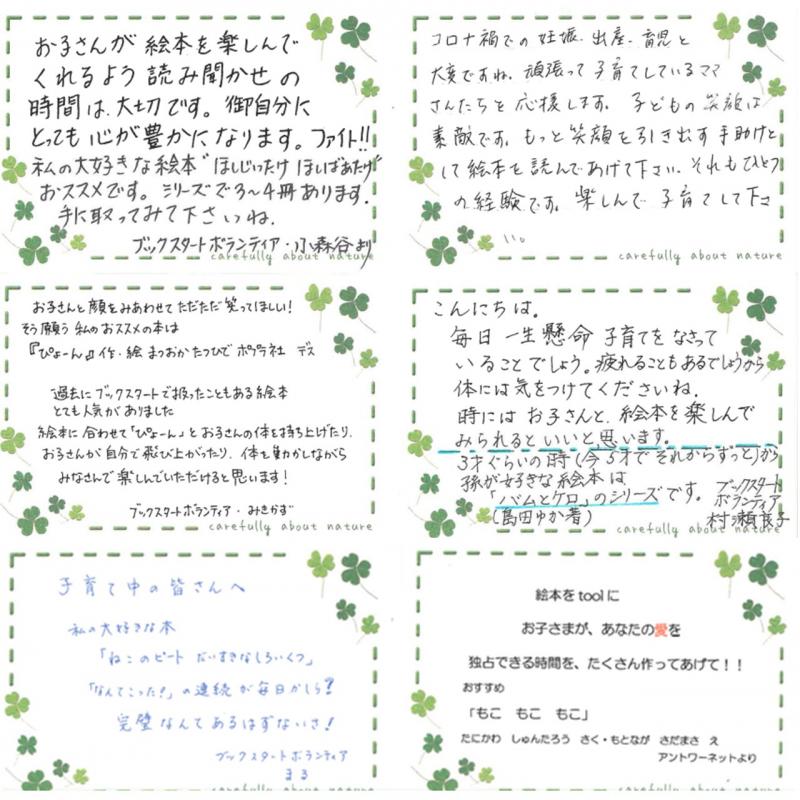 お子さんが 絵本を楽しんで
くれるよう 読み聞かせの
時間は、大切です。御自分に
とっても 心が豊かになります。ファイト!!
私の大好きな絵本"ほしじいたけ ほしばあたけ"
おススメです。シリーズで3〜4冊あります。
手に取ってみて下さいね。
ブックスタートボランティア・小森谷より
carefully about nature
コロナ禍での妊娠、出産、育児と
大変ですね。頑張って子育てしているママ
さんたちを応援します。子どもの笑顔は
素敵です。もっと笑顔を引き出す手助けと
して絵本を読んであげて下さい。それもひとつ
の経験です。楽しんで子育てして下さ
い。
carefully about nature
お子さんと顔をみあわせてただただ笑ってほしい!
そう願う私のおススメの本は
『ぴょーん』作・絵 まつおかたつひで ポプラ社 デス
過去にブックスタートで扱ったこともある絵本
とても人気がありました
絵本に合わせて「ぴょーん」とお子さんの体を持ち上げたり、
お子さんが自分で飛び上がったり、体を動かしながら
みなさんで楽しんでいただけると思います!
ブックスタートボランティア・みきかず
carefully about nature
こんにちは。
毎日一生懸命子育てをなさって
いることでしょう。疲れることもあるでしょうから
体には気をつけてくださいね。
時にはお子さんと、絵本を楽しんで
みられるといいと思います。
3才ぐらいの時(今5才でそれからずっと)から
孫が好きな絵本は
「バムとケロ」のシリーズです。
(島田ゆか著)
ブックスタート
ボランティア
村瀬良子
carefully about nature
子育て中の皆さんへ
私の大好きな本
「ねこのピート だいすきなしろいくつ」
「なんてこった!」の連続が毎日かしら?
完璧なんてあるはずないさ!
ブックスタートボランティア
まる
carefully about nature
絵本をtoolに
お子さまが、あなたの愛を
独占できる時間を、たくさん作ってあげて!!
おすすめ
「もこ もこ もこ」
たにかわ しゅんたろう さく・もとなが さだまさ え
アントワーネットより
carefully about nature